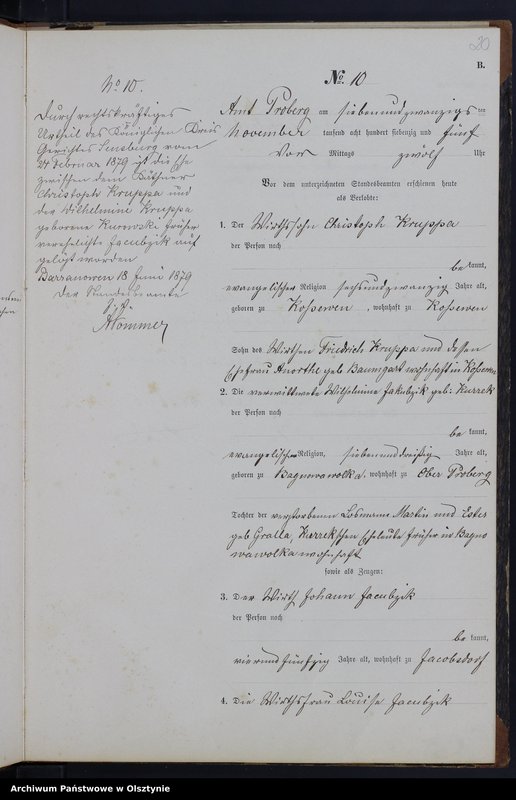 20
B.
No 10.
Durch rechtskräftiges
Urtheil des Königlichen Kreis
Gerichtes Sensburg vom
27 Februar 1879 ist die Ehe
zwischen dem Käthner
Christoph Kruppa und
der Wilhelmine Kruppa
geborene Kurowski früher
verehelichte Jacubzik auf
gelöst worden
Barranowen 18 Juni 1879
Der Standesbeamte
No. 10
Amt Proberg am siebenundzwanzigs ten
November tausend acht hundert siebenzig und fünf
Vor Mittags zwölf Uhr
Vor dem unterzeichneten Standesbeamten erschienen heute
als Verlobte:
1. Der Wirthssohn Christoph Kruppa
der Person nach
be kannt,
evangelischer Religion sechsundzwanzig Jahre alt,
geboren zu Kossewen, wohnhaft zu Kossewen
Sohn des Wirthen Friedrich Kruppa und dessen
Ehefrau Anorthe geb Baumgart wohnhaft in Kossewen
2. Die verwittwete Wilhelmine Jakubzik geb: Kurrek
der Person nach
be kannt,
evangelischer Religion, siebenunddreißig Jahre alt,
geboren zu Bagnowawolka, wohnhaft zu Ober Proberg
Tochter der verstorbenen Losmann Martin und Ester
geb Gralla, Kurrekschen Eheleute früher in Bagno
wawolka wohnhaft
sowie als Zeugen:
3. Der Wirth Johann Jacubzik
der Person nach
be kannt,
vierundfünfzig Jahre alt, wohnhaft zu Jacobsdorf
4. Die Wirthsfrau Louise Jacubzik
Archiwum Państwowe w Olsztynie